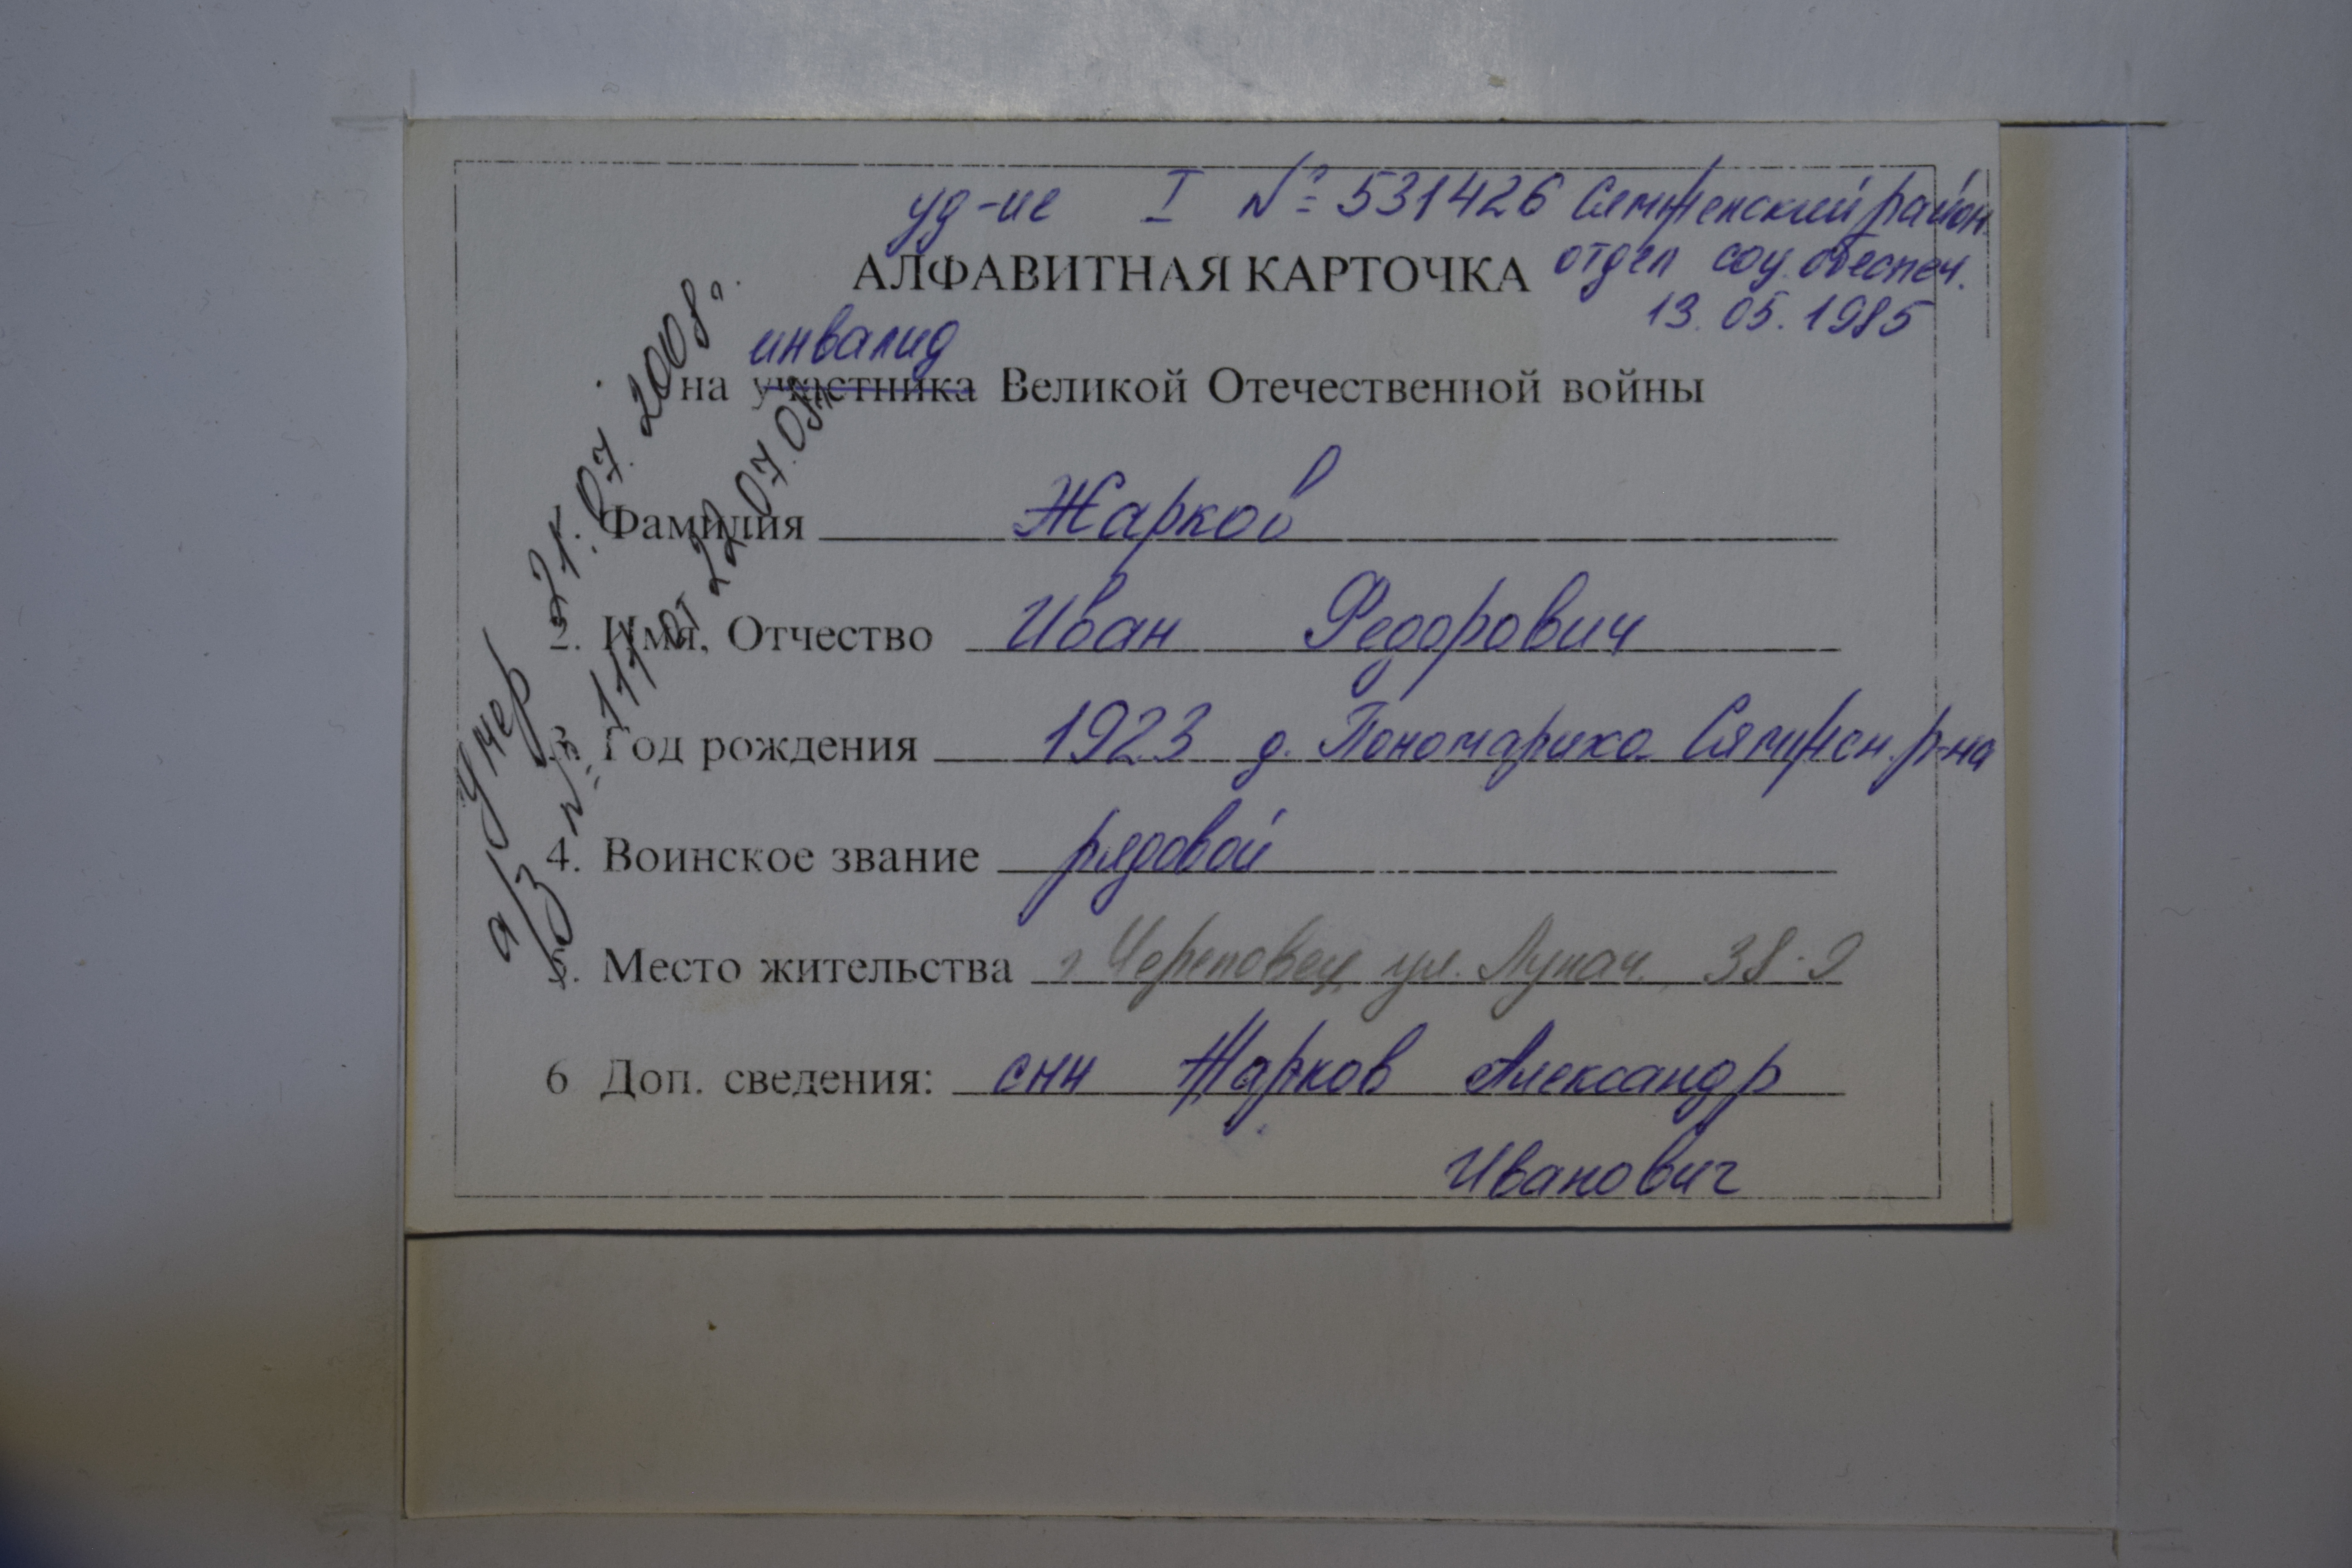 уд-ие I № 531426 Сямженский район.
отдел соц. обеспеч.
13.05.1985
АЛФАВИТНАЯ КАРТОЧКА
инвалид
на участника Великой Отечественной войны
Умер 21.07.2008г.
а/з № 111 от 22.07.08г.
1. Фамилия Жарков
2. Имя, Отчество Иван Федорович
3. Год рождения 1923 д. Пономариха Сямженск. р-на
4. Воинское звание рядовой
5. Место жительства г Череповец, ул. Лунач. 38-9
6 Доп. сведения: сын Жарков Александр
Иванович